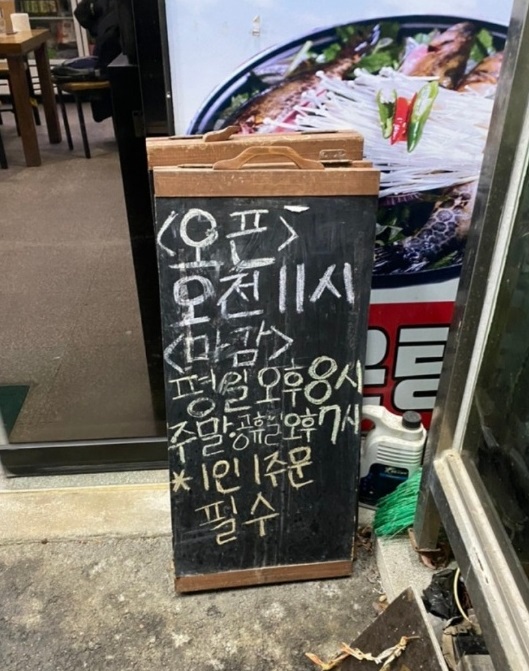 <오픈>
오전 11시
<마감>
평일 오후 8시
주말·공휴일 오후 7시
*1인 1주문
필수
탕